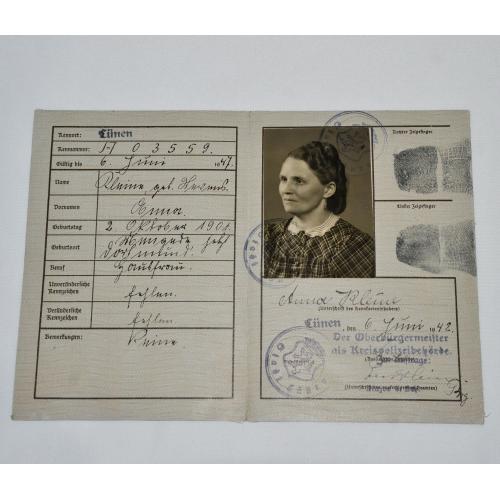 Kennort: Lünen
Kennummer: J-T 03559
Gültig bis 6. Juni 1947
Name Kleine geb.
Vornamen Anna.
Geburtstag 2 Oktober 1901
Geburtsort Mengede jetzt
Dortmund.
Beruf Hausfrau.
Unveränderliche
Kennzeichen fehlen.
Veränderliche
Kennzeichen fehlen.
Bemerkungen: Keine
Rechter Zeigefinger
Linker Zeigefinger
Anna Kleine
(Unterschrift des Kennkarteninhabers)
Lünen, den 6. Juni 1942
Der Oberbürgermeister
als Kreispolizeibehörde.
(Unterschrift des ausfertigenden Beamten)